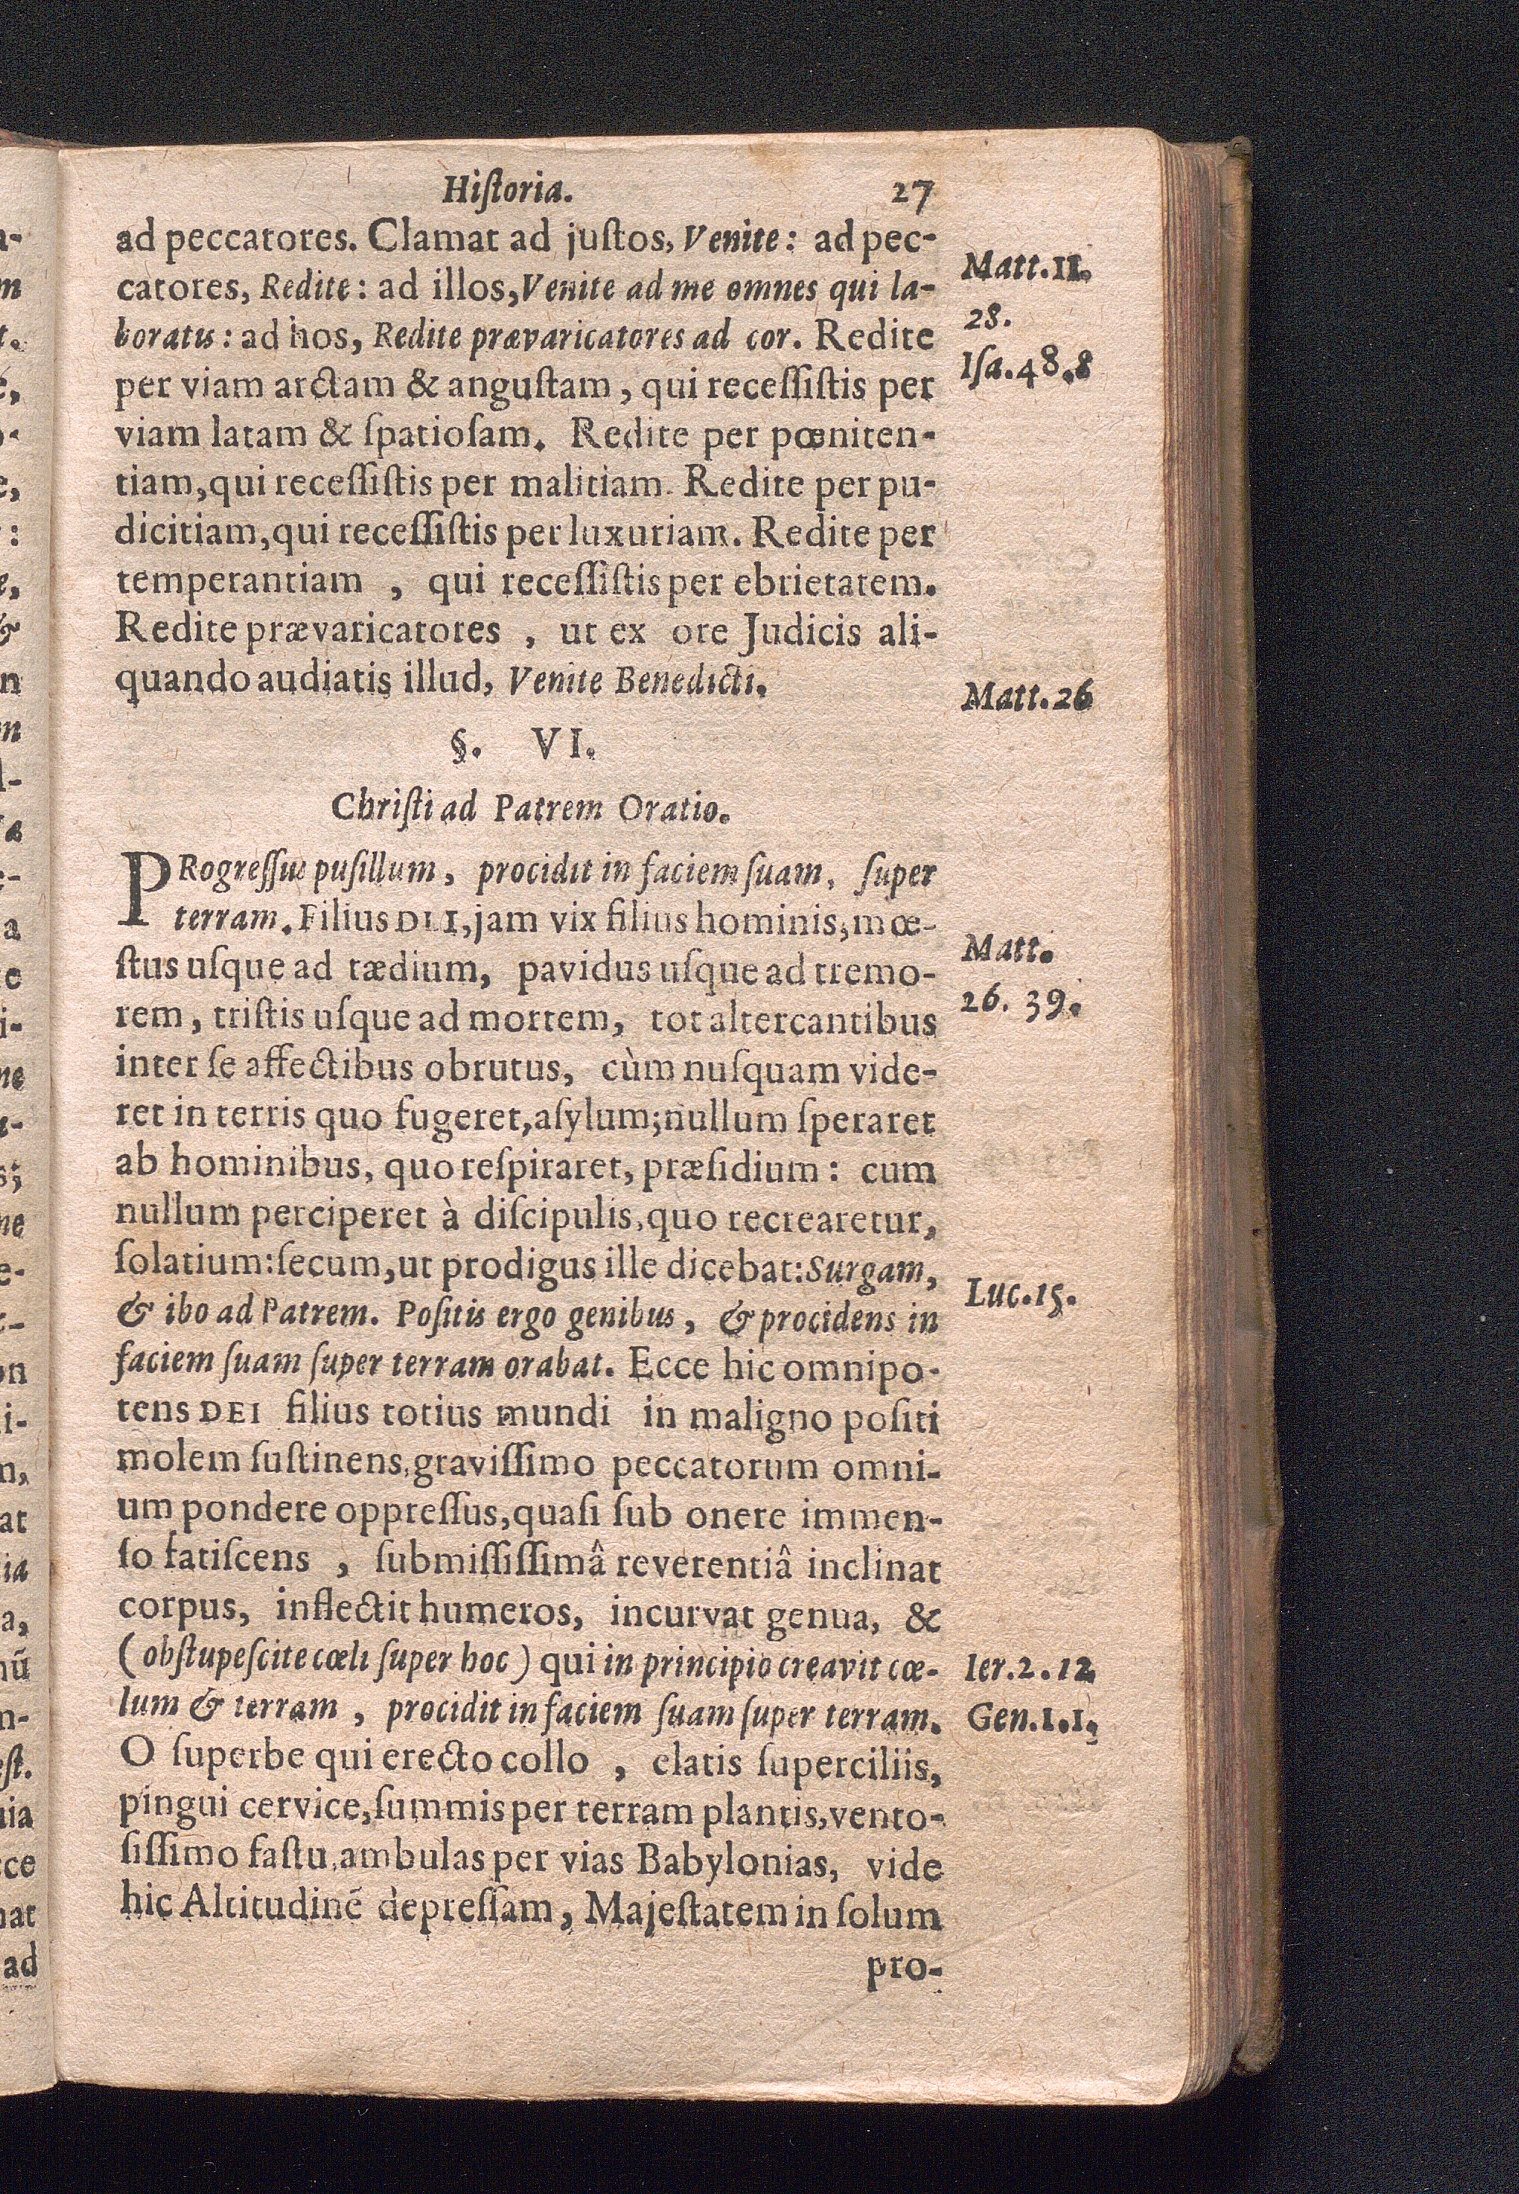 Hiſtoria. 27
ad peccatores. Clamat ad juſtos, Venite: ad pec-
catores, Redite: ad illos, Venite ad me omnes qui la-
boratis: ad hos, Redite prævaricatores ad cor. Redite
per viam arctam & anguſtam, qui receſſiſtis per
viam latam & ſpatioſam. Redite per pœniten-
tiam, qui receſſiſtis per malitiam. Redite per pu-
dicitiam, qui receſſiſtis per luxuriam. Redite per
temperantiam, qui receſſiſtis per ebrietatem.
Redite prævaricatores, ut ex ore Judicis ali-
quando audiatis illud, Venite Benedicti.
Matt. 11.
28.
Iſa. 48. 8
Matt. 26
§. VI.
Chriſti ad Patrem Oratio.
PRogreſſus puſillum, procidit in faciem ſuam, ſuper
terram. Filius DEI, jam vix filius hominis; mœ-
ſtus uſque ad tædium, pavidus uſque ad tremo-
rem, triſtis uſque ad mortem, tot altercantibus
inter ſe affectibus obrutus, cùm nuſquam vide-
ret in terris quo fugeret, aſylum; nullum ſperaret
ab hominibus, quo reſpiraret, præſidium: cum
nullum perciperet à diſcipulis, quo recrearetur,
ſolatium: ſecum, ut prodigus ille dicebat: Surgam,
& ibo ad Patrem. Poſitis ergo genibus, & procidens in
faciem ſuam ſuper terram orabat. Ecce hic omnipo-
tens DEI filius totius mundi in maligno poſiti
molem ſuſtinens, graviſſimo peccatorum omni-
um pondere oppreſſus, quaſi ſub onere immen-
ſo fatiſcens, ſubmiſſiſſimâ reverentiâ inclinat
corpus, inflectit humeros, incurvat genua, &
(obſtupeſcite cœli ſuper hoc) qui in principio creavit cœ-
lum & terram, procidit in faciem ſuam ſuper terram.
O ſuperbe qui erecto collo, elatis ſuperciliis,
pingui cervice, ſummis per terram plantis, vento-
ſiſſimo faſtu, ambulas per vias Babylonias, vide
hic Altitudinẽ depreſſam, Majeſtatem in ſolum
pro-
Matt.
26. 39.
Luc. 15.
Ier. 2. 12
Gen. 1. 1,